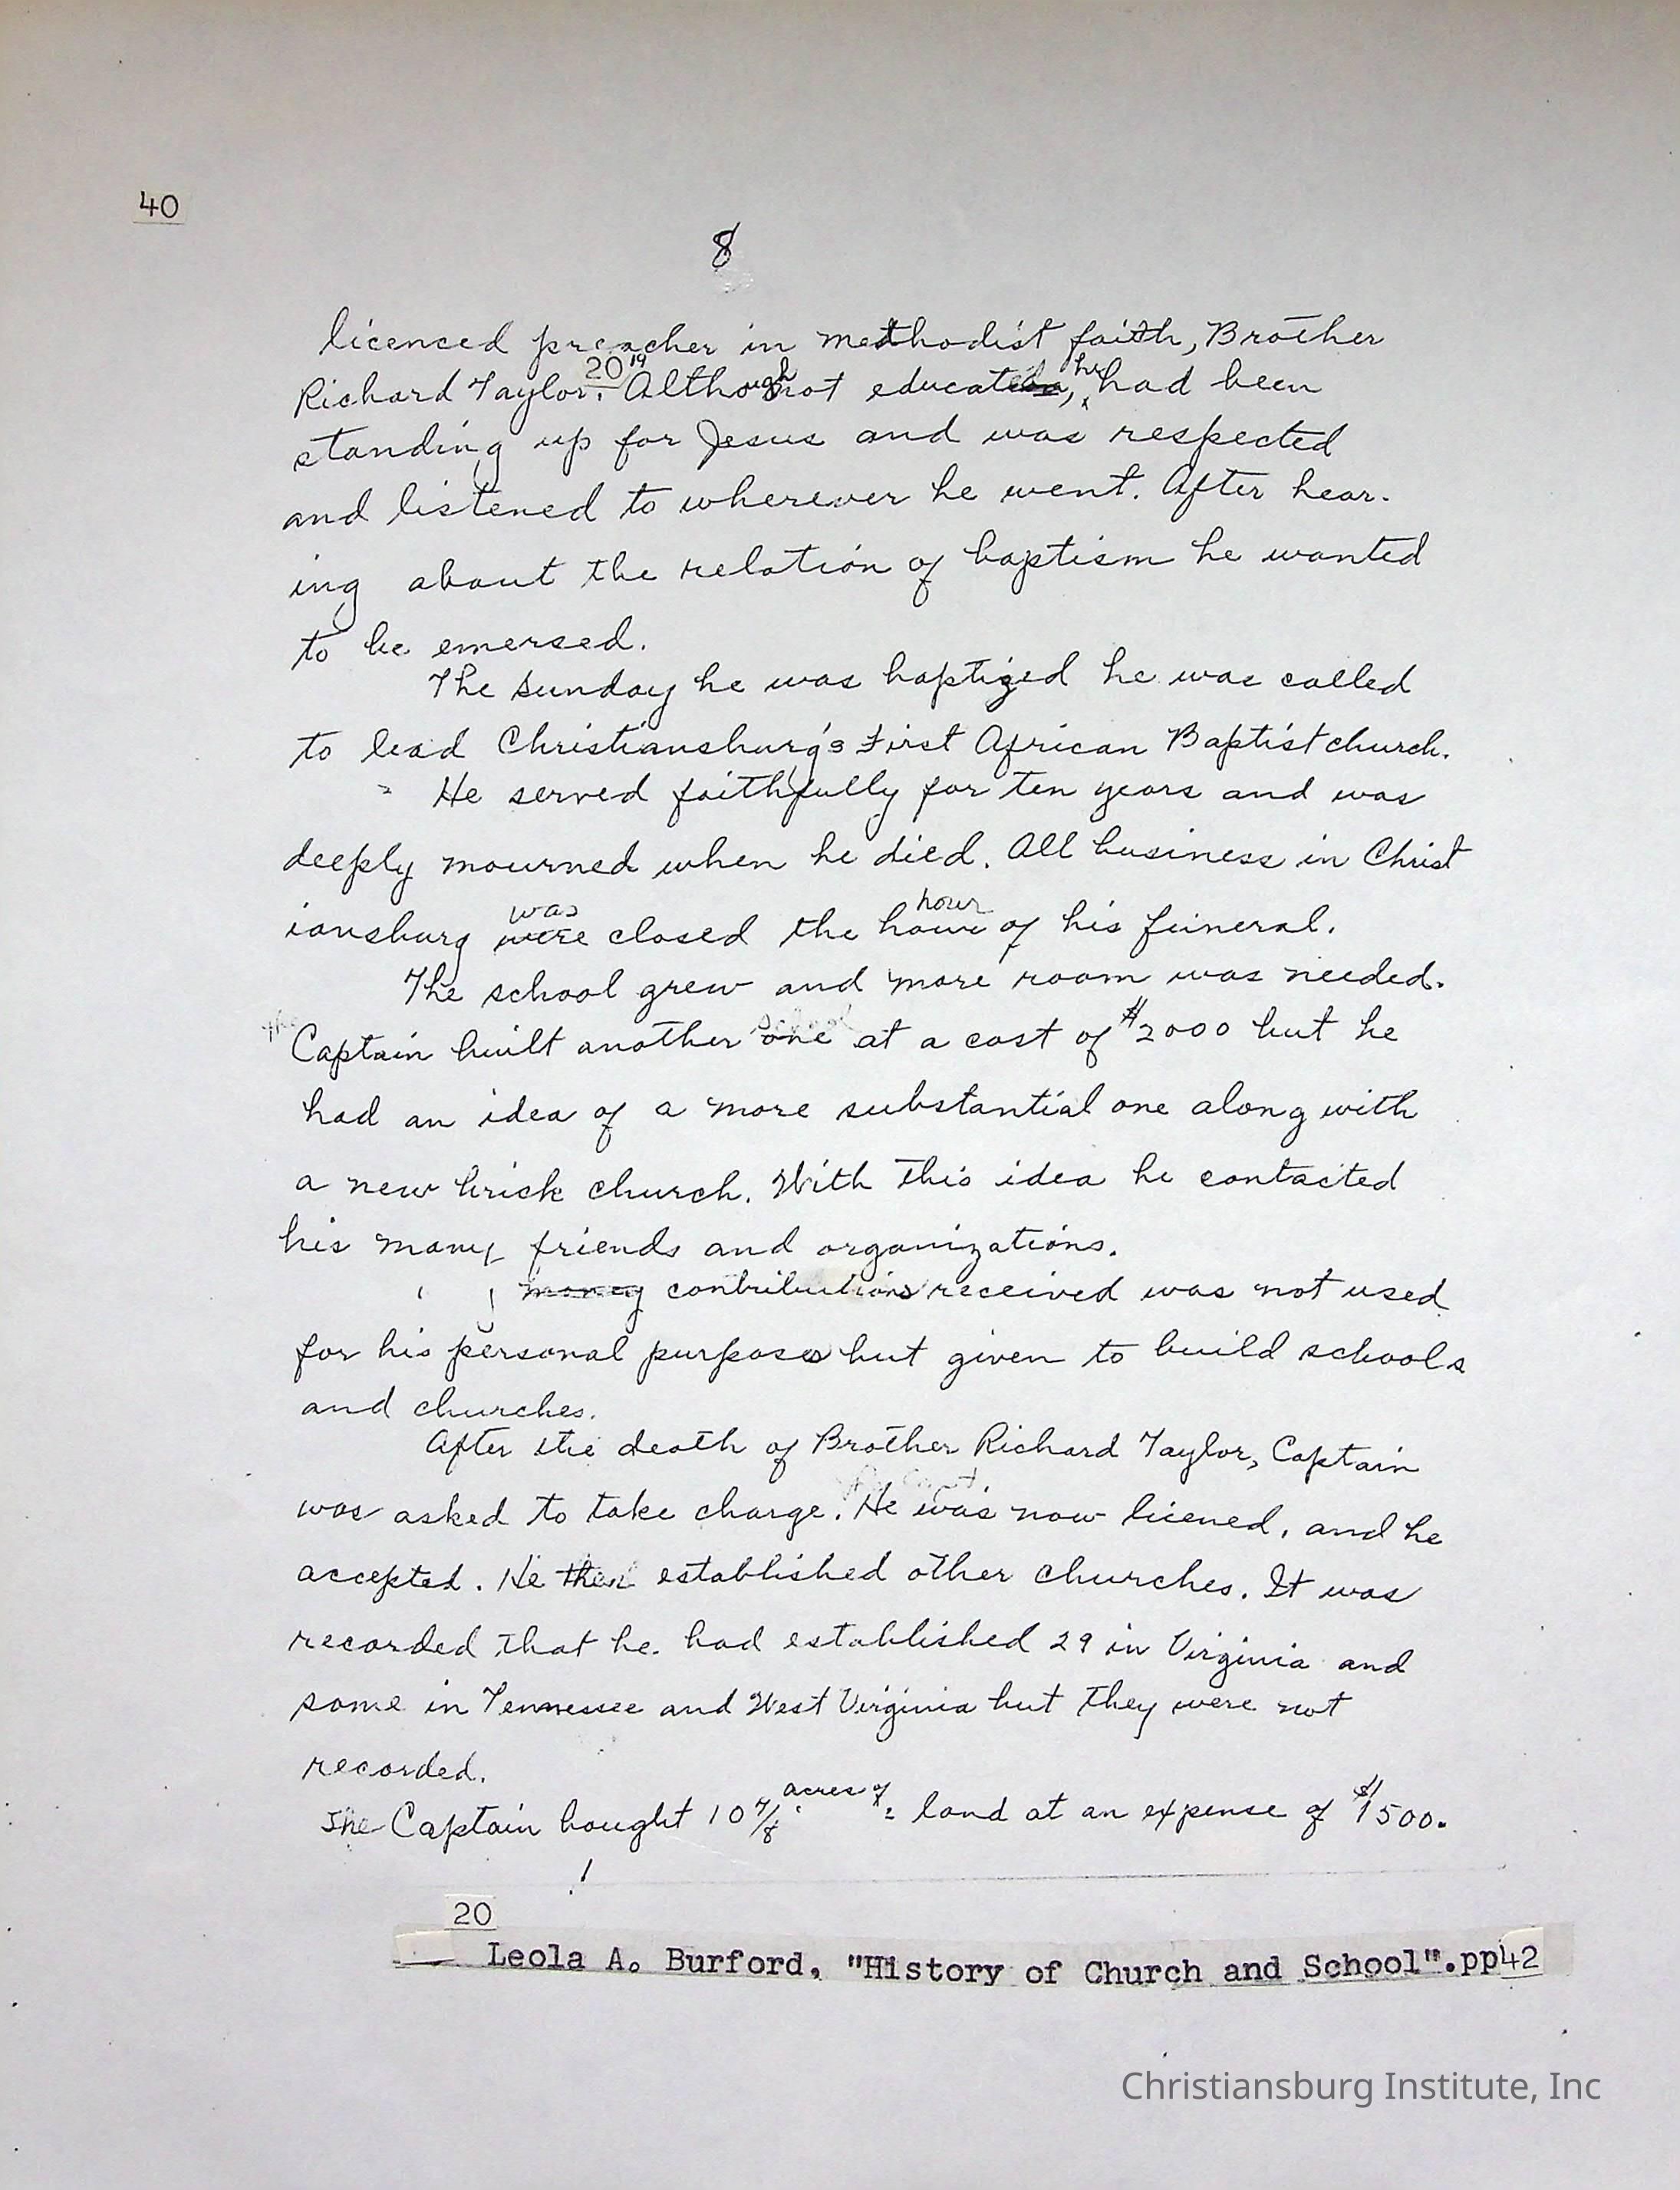 40
8
licenced preacher in methodist faith, Brother
Richard Taylor. 20 19 Although not educated, he had been
standing up for Jesus and was respected
and listened to wherever he went. After hear-
ing about the relation of baptism he wanted
to be emersed.
The Sunday he was baptized he was called
to lead Christiansburg's First African Baptist church.
He served faithfully for ten years and was
deeply mourned when he died. All business in Christ
iansburg were was closed the hour hour of his funeral.
The school grew and more room was needed.
the Captain built another one school at a cost of $2000 but he
had an idea of a more substantial one along with
a new brick church. With this idea he contacted
his many friends and organizations.
money contributions received was not used
for his personal purposes but given to build schools
and churches.
After the death of Brother Richard Taylor, Captain
was asked to take charge. He was now licened, and he
accepted. He then established other churches. It was
recorded that he had established 29 in Virginia and
some in Tennessee and West Virginia but they were not
recorded.
The Captain bought 10 7/8 acres of land at an expense of $1500.
20
Leola A. Burford, "History of Church and School".pp42
Christiansburg Institute, Inc